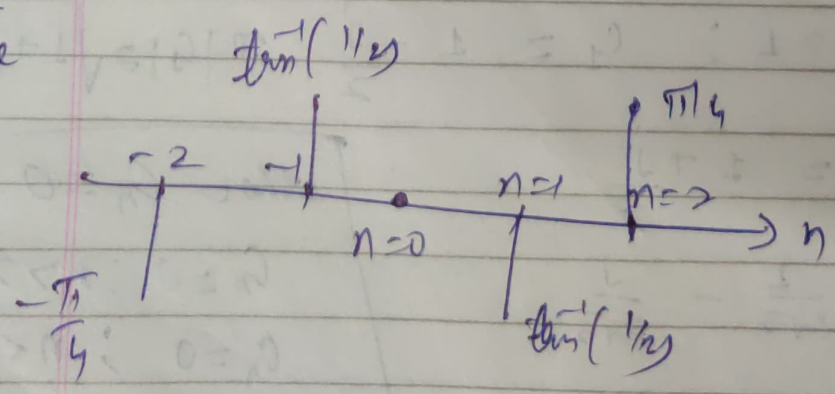 tan⁻¹(1/2)
π/4
-2
-1
n=1
n=2
n=0
n
-π/4
tan⁻¹(1/2)